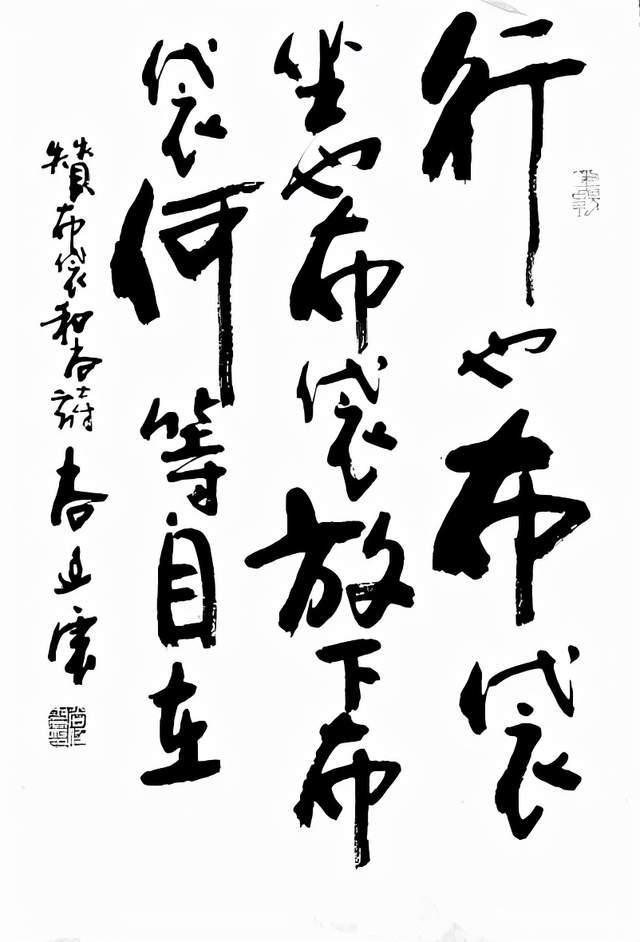 行也布袋
坐也布袋放下布
袋何等自在
赞布袋和尚诗